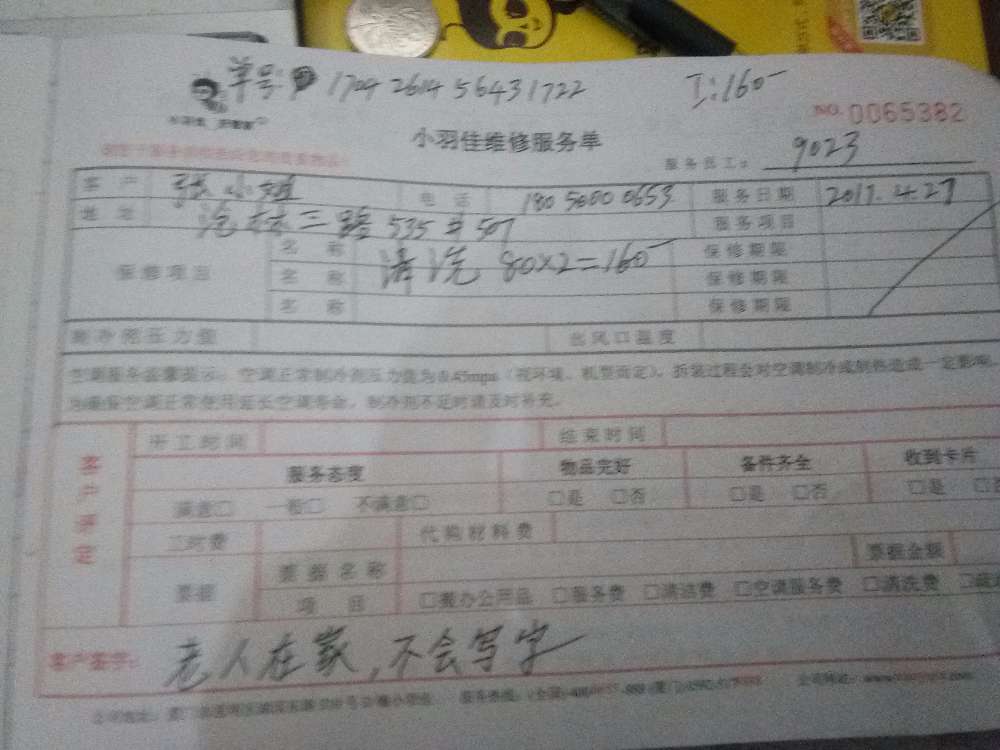 单号: 1704 2614 56431722 工:160-
NO. 0065382
小羽佳维修服务单
服务员工: 9023
客户 张小姐 电话 180 5000 0653 服务日期 2017.4.27
地址 三路 535 # 507 服务项目
保修项目 名称 清洗 80×2=160- 保修期限
名称 保修期限
名称 保修期限
制冷剂压力值 出风口温度
空调服务温馨提示: 空调正常制冷剂压力值为0.45mpa (视环境、机型而定)。拆装过程会对空调制冷或制热造成一定影响,
为确保空调正常使用延长空调寿命, 制冷剂不足时请及时补充。
客户评定
开工时间 结束时间
服务态度 物品完好 备件齐全 收到卡片
满意□ 一般□ 不满意□ □是 □否 □是 □否 □是
工时费 代购材料费
票据 票据名称 票据金额
项目 □办公用品 □服务费 □清洁费 □空调服务费 □清洗费
客户签字: 老人在家, 不会写字